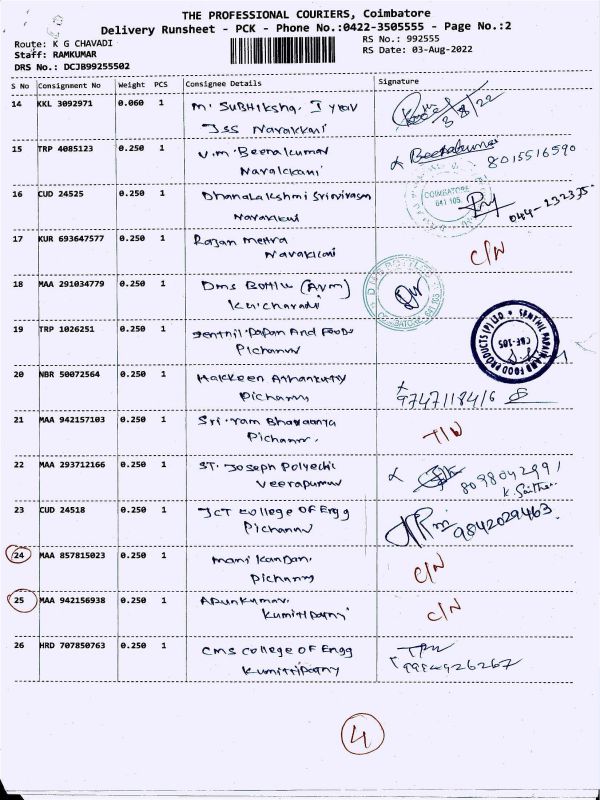 THE PROFESSIONAL COURIERS, Coimbatore
Delivery Runsheet - PCK - Phone No.:0422-3505555 - Page No.:2
Route: K G CHAVADI
RS No.: 992555
Staff: RAMKUMAR
RS Date: 03-Aug-2022
DRS No.: DCJB99255502
S No Consignment No Weight PCS Consignee Details Signature
14 KKL 3092971 0.060 1 M. SUBHIKSHA. I year 3/8/22
JSS Navakkani
15 TRP 4085123 0.250 1 V.M. Beerakumar 8015516590
Navakkani
16 CUD 24525 0.250 1 Dhanalakshmi Srinivasan
Navakkani
COIMBATORE
641 105.
17 KUR 693647577 0.250 1 Rajan Mehra C/N
Navakkani
18 MAA 291034779 0.250 1 Dms Bottle (Avm)
K.K. Chavadi
19 TRP 1026251 0.250 1 Senthil Papan And Foods
Pichanur
SENTHIL PAPAIN AND FOOD PRODUCTS (P) LTD.
CBE-105
20 NBR 50072564 0.250 1
Pichanur
9747118416
21 MAA 942157103 0.250 1 Sri ram Bhavaanya
Pichanur.
22 MAA 293712166 0.250 1 ST. Joseph Polytech 8098042991
Veerapanur
23 CUD 24518 0.250 1 JCT college OF Engg 9842029463
Pichanur
24 MAA 857815023 0.250 1 Mani Kandan. C/N
Pichanur
25 MAA 942156938 0.250 1 Arunkumar. C/N
Kumittipathy
26 HRD 707850763 0.250 1 CMS college OF Engg
Kumittipathy
9994926267
4